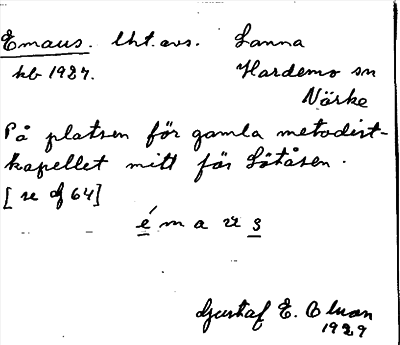 Emaus. lht. avs. Lanna
kb 1927. Hardemo sn
Närke
På platsen för gamla metodist-
kapellet mitt för Lötåsen.
[se df 64]
é m a u s
Gustaf E. Olson
1929